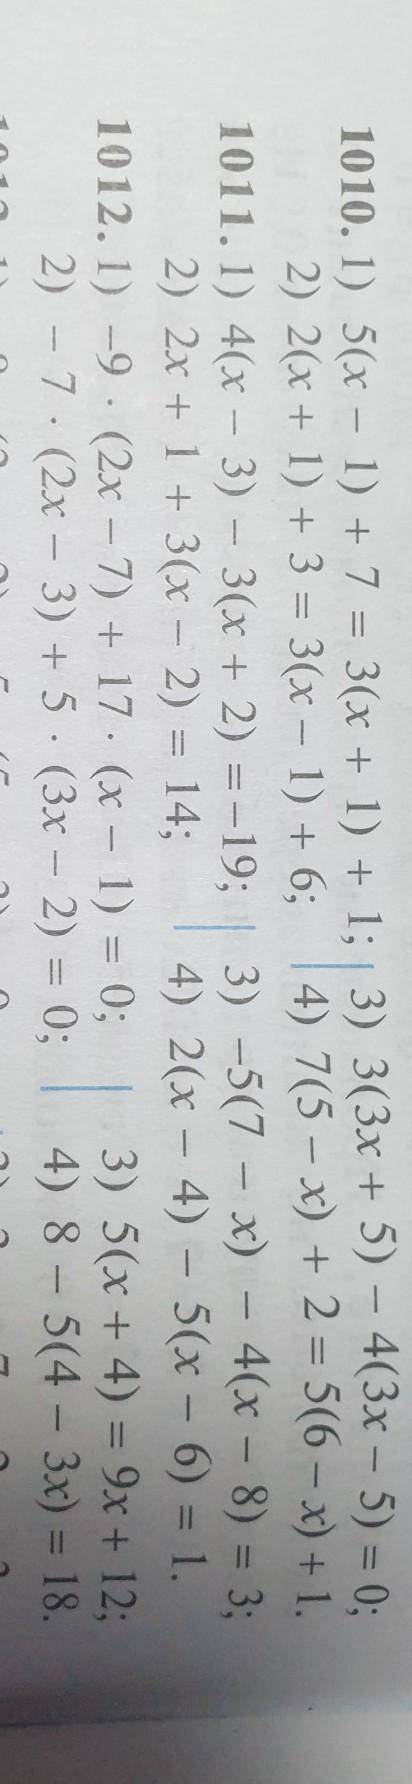 1010. 1) 5(x − 1) + 7 = 3(x + 1) + 1; 3) 3(3x + 5) − 4(3x − 5) = 0;
2) 2(x + 1) + 3 = 3(x − 1) + 6; 4) 7(5 − x) + 2 = 5(6 − x) + 1.
1011. 1) 4(x − 3) − 3(x + 2) = −19; 3) −5(7 − x) − 4(x − 8) = 3;
2) 2x + 1 + 3(x − 2) = 14; 4) 2(x − 4) − 5(x − 6) = 1.
1012. 1) −9 · (2x − 7) + 17 · (x − 1) = 0; 3) 5(x + 4) = 9x + 12;
2) − 7 · (2x − 3) + 5 · (3x − 2) = 0; 4) 8 − 5(4 − 3x) = 18.